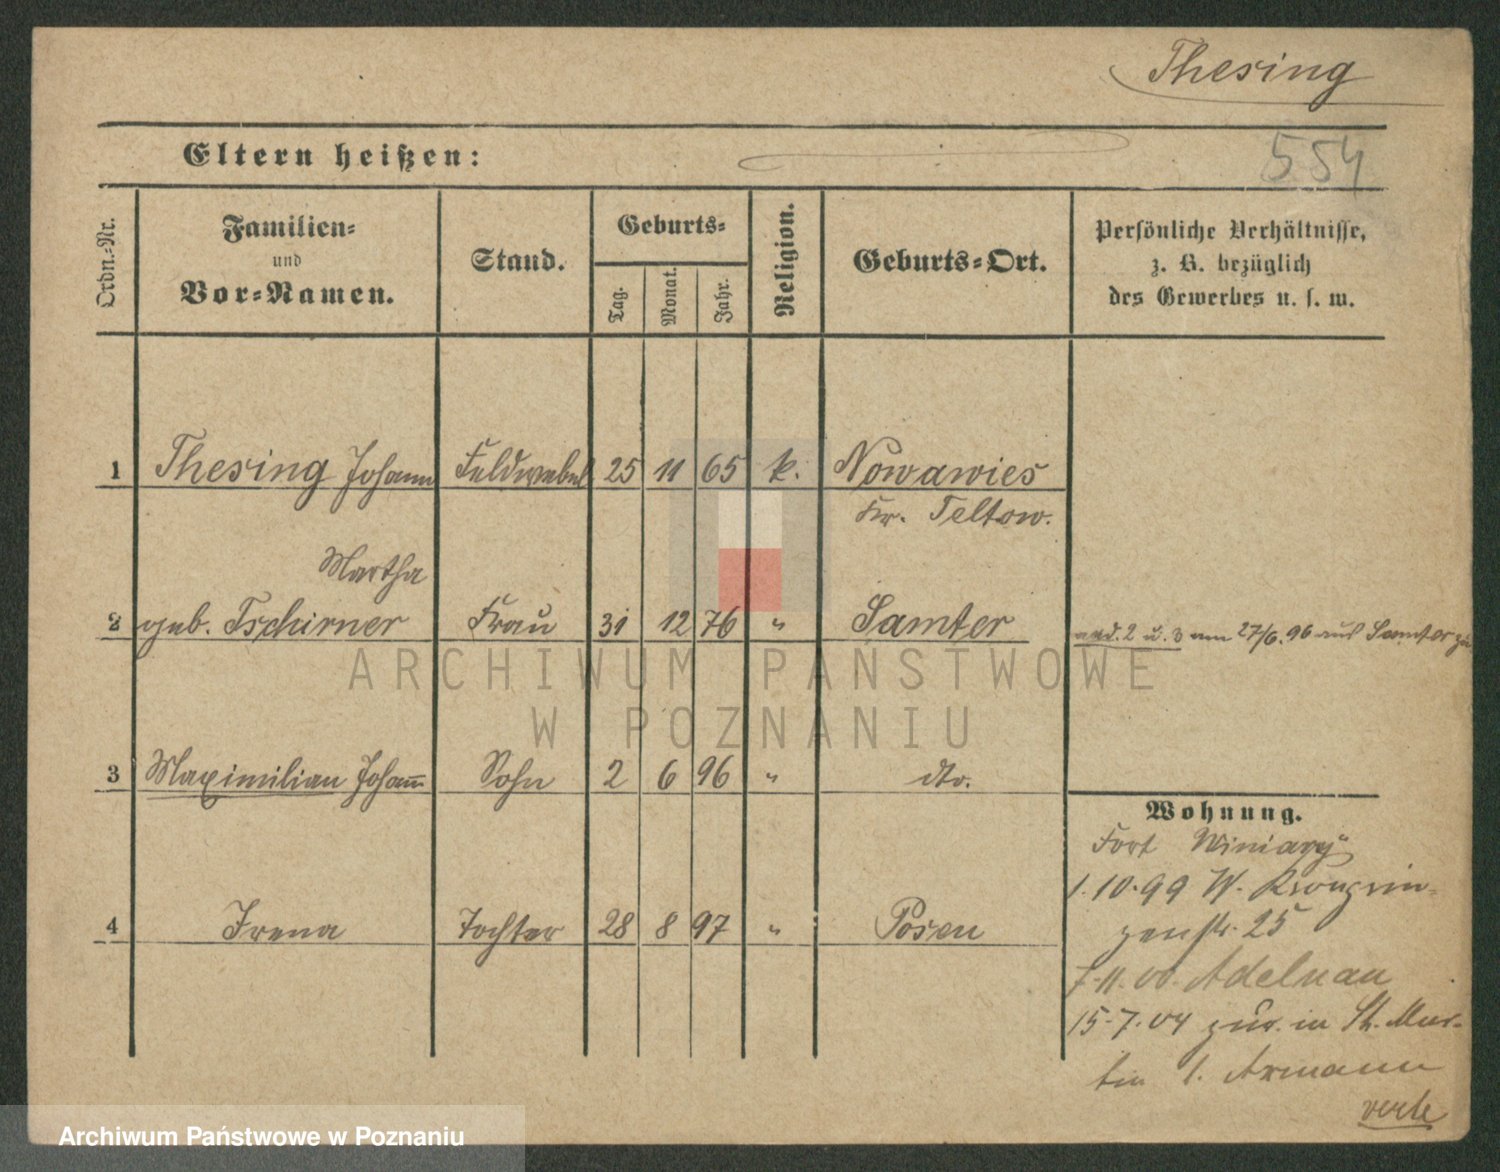 Thesing
554
Eltern heißen:
Ordn.-Nr.
Familien-
und
Vor-Namen.
Stand.
Geburts-
Tag.
Monat.
Jahr.
Religion.
Geburts-Ort.
Persönliche Verhältnisse,
z. B. bezüglich
des Gewerbes u. s. w.
1 Thesing Johann Feldwebel 25 11 65 k. Nowawies
Kr. Teltow.
Martha
2 geb. Tschirner Frau 31 12 76 " Samter
2 u. 3 am 27/6. 96 aus Samter
3 Maximilian Johann Sohn 2 6 96 " dto.
Wohnung.
Fort Winiary
1.10.99 W. Kronprin-
4 Irena Tochter 28 8 97 " Posen
zenstr. 25
7.11.00. Adelnau
15.7.04 zur. in St. Mar-
tin 1. Armann
verte
ARCHIWUM PAŃSTWOWE
W POZNANIU
Archiwum Państwowe w Poznaniu